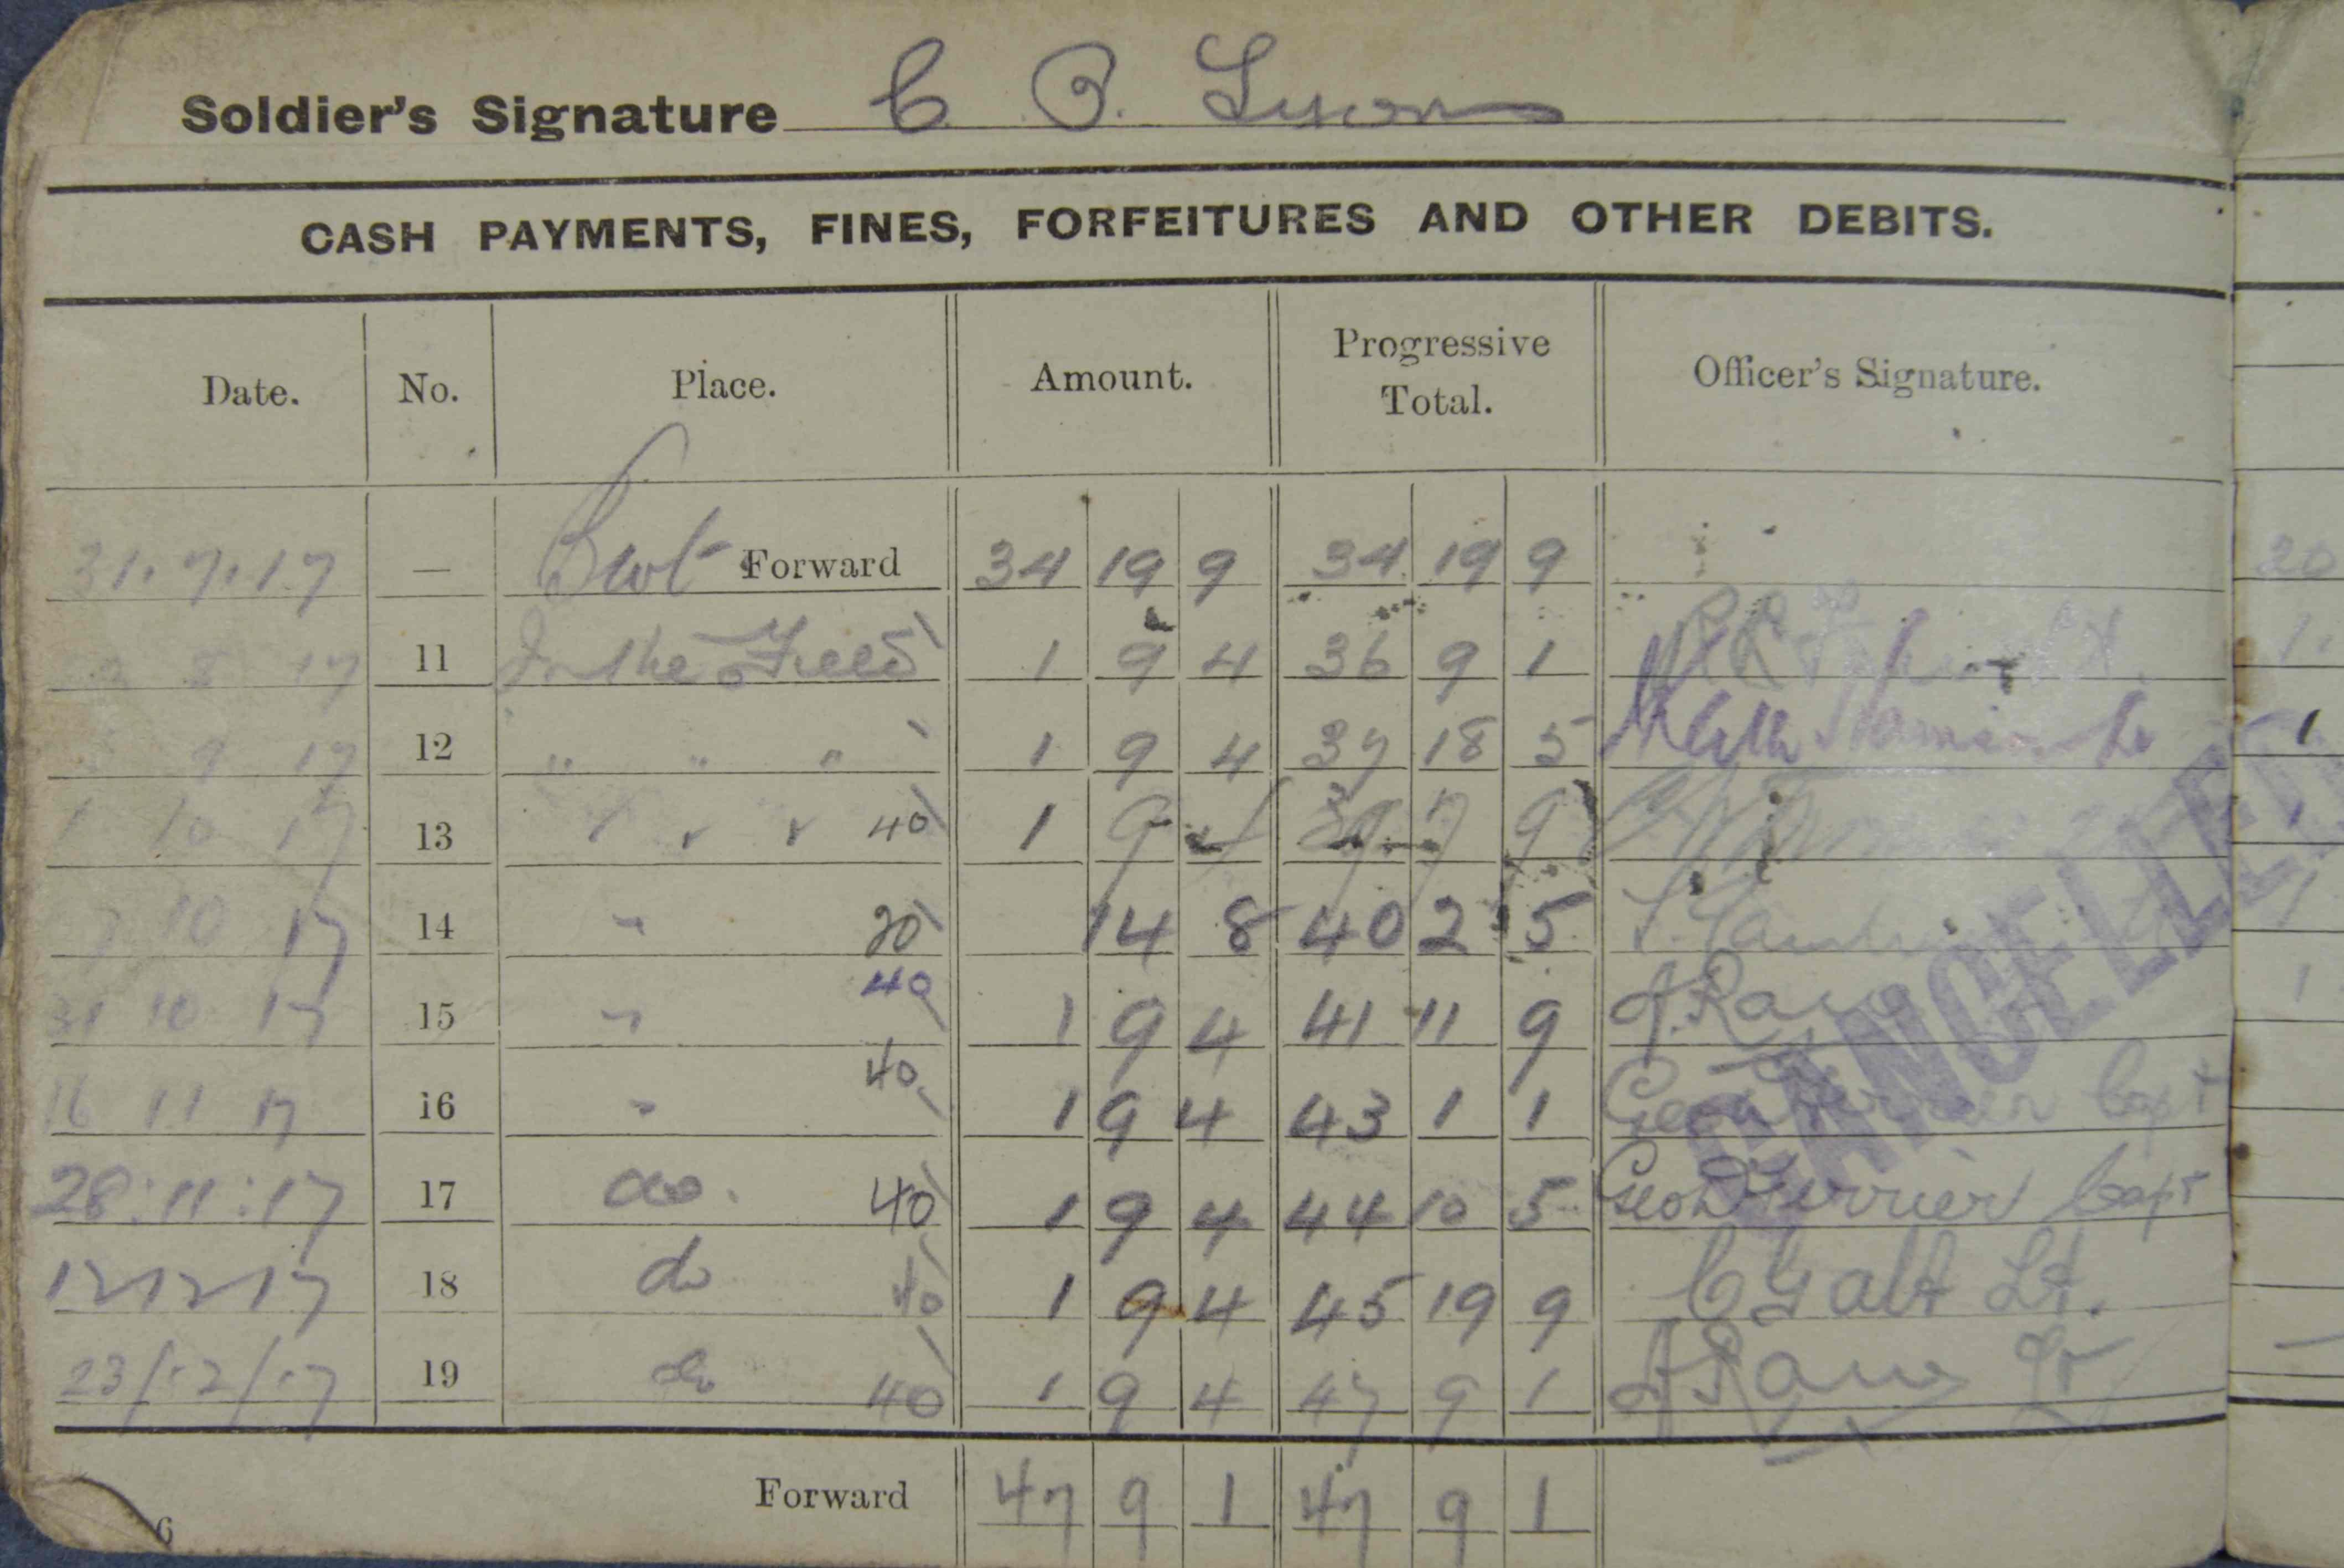 Soldier's Signature C. P.
CASH PAYMENTS, FINES, FORFEITURES AND OTHER DEBITS.
Date. No. Place. Amount. Progressive Total. Officer's Signature.
31.7.17 — Forward 34 19 9 34 19 9
8 17 11 In the Field 1 9 4 36 9 1
9 17 12 " " " 1 9 4 37 18 5
1 10 17 13 " " " 40 1 9 4 39 7 9
10 17 14 " 20 14 8 40 2 5
31 10 17 15 " 40 1 9 4 41 11 9
16 11 17 16 " 40 1 9 4 43 1 1 Capt
28:11:17 17 do. 40 1 9 4 44 10 5 Geo Ferrier Capt
12 12 17 18 do 40 1 9 4 45 19 9 C Galt Lt.
23/12/17 19 do 40 1 9 4 47 9 1 Lt
Forward 47 9 1 47 9 1
6
CANCELLED